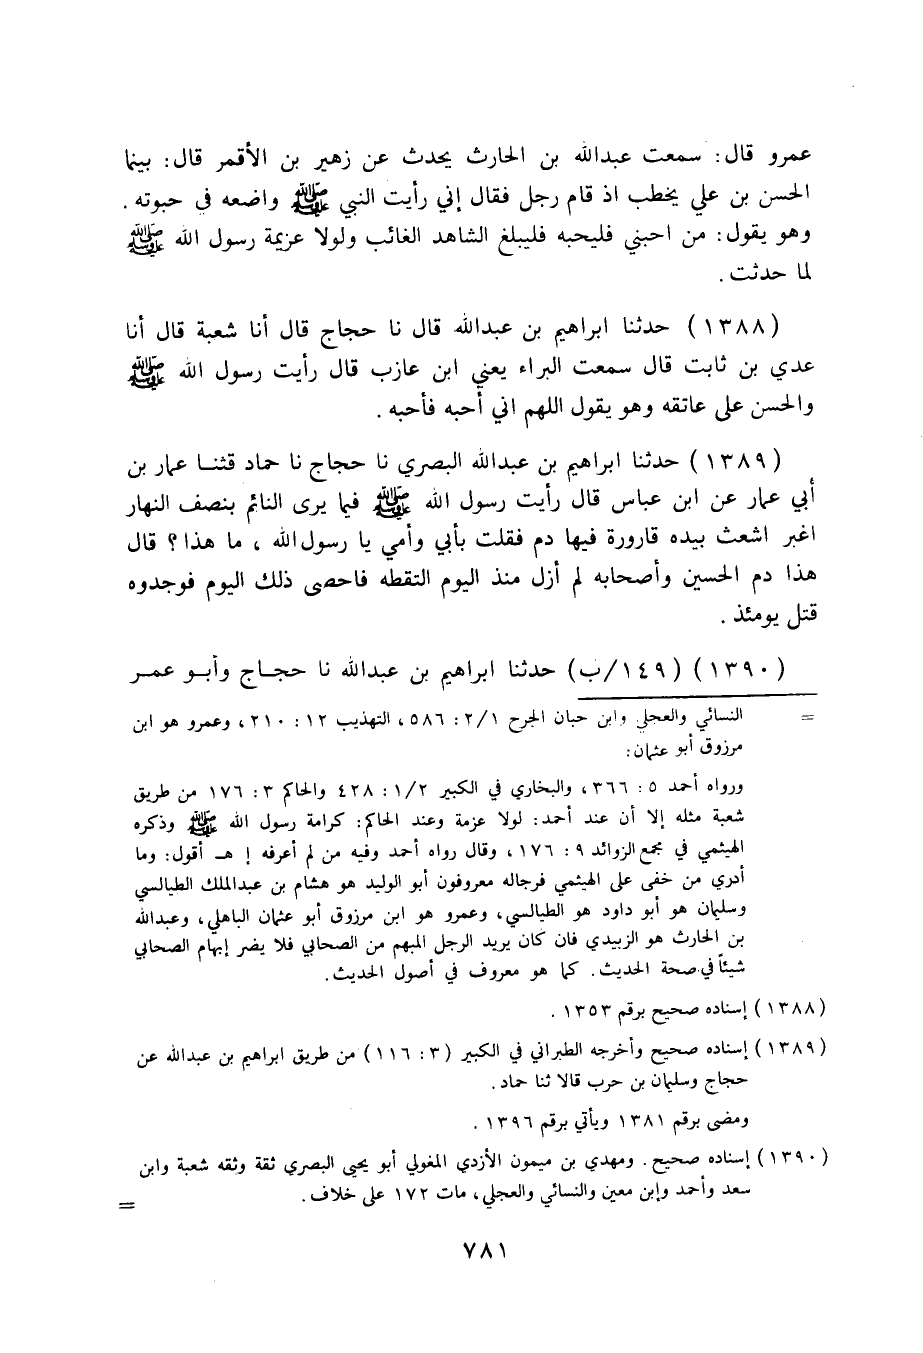 عمرو قال: سمعت عبدالله بن الحارث يحدث عن زهير بن الأقمر قال: بينما
الحسن بن علي يخطب اذ قام رجل فقال إني رأيت النبي ﷺ واضعه في حبوته .
وهو يقول: من احبني فليحبه فليبلغ الشاهد الغائب ولولا عزيمة رسول الله ﷺ
لما حدثت .
(١٣٨٨) حدثنا ابراهيم بن عبدالله قال نا حجاج قال أنا شعبة قال أنا
عدي بن ثابت قال سمعت البراء يعني ابن عازب قال رأيت رسول الله ﷺ
والحسن على عاتقه وهو يقول اللهم اني أحبه فأحبه .
(١٣٨٩) حدثنا ابراهيم بن عبدالله البصري نا حجاج نا حماد قثنا عمار بن
أبي عمار عن ابن عباس قال رأيت رسول الله ﷺ فيما يرى النائم بنصف النهار
اغبر اشعث بيده قارورة فيها دم فقلت بأبي وأمي يا رسول الله ، ما هذا؟ قال
هذا دم الحسين وأصحابه لم أزل منذ اليوم التقطه فاحصى ذلك اليوم فوجدوه
قتل يومئذ .
(١٣٩٠) (١٤٩/ب) حدثنا ابراهيم بن عبدالله نا حجاج وأبو عمر
= النسائي والعجلي وابن حبان الجرح ٢/١: ٥٨٦، التهذيب ١٢: ٢١٠، وعمرو هو ابن
مرزوق أبو عثمان:
ورواه أحمد ٥: ٣٦٦، والبخاري في الكبير ١/٢: ٤٢٨ والحاكم ٣: ١٧٦ من طريق
شعبة مثله إلا أن عند أحمد: لولا عزمة وعند الحاكم: كرامة رسول الله ﷺ وذكره
الهيثمي في مجمع الزوائد ٩: ١٧٦، وقال رواه أحمد وفيه من لم أعرفه إ هـ أقول: وما
أدري من خفى على الهيثمي فرجاله معروفون أبو الوليد هو هشام بن عبدالملك الطيالسي
وسليمان هو أبو داود هو الطيالسي، وعمرو هو ابن مرزوق أبو عثمان الباهلي، وعبدالله
بن الحارث هو الزبيدي فان كان يريد الرجل المبهم من الصحابي فلا يضر إبهام الصحابي
شيئاً في صحة الحديث. كما هو معروف في أصول الحديث.
(١٣٨٨) إسناده صحيح برقم ١٣٥٣ .
(١٣٨٩) إسناده صحيح وأخرجه الطبراني في الكبير (٣: ١١٦) من طريق ابراهيم بن عبدالله عن
حجاج وسليمان بن حرب قالا ثنا حماد .
ومضى برقم ١٣٨١ ويأتي برقم ١٣٩٦ .
(١٣٩٠) إسناده صحيح. ومهدي بن ميمون الأزدي المغولي أبو يحيى البصري ثقة وثقه شعبة وابن
سعد وأحمد وإبن معين والنسائي والعجلي، مات ١٧٢ على خلاف. =
٧٨١